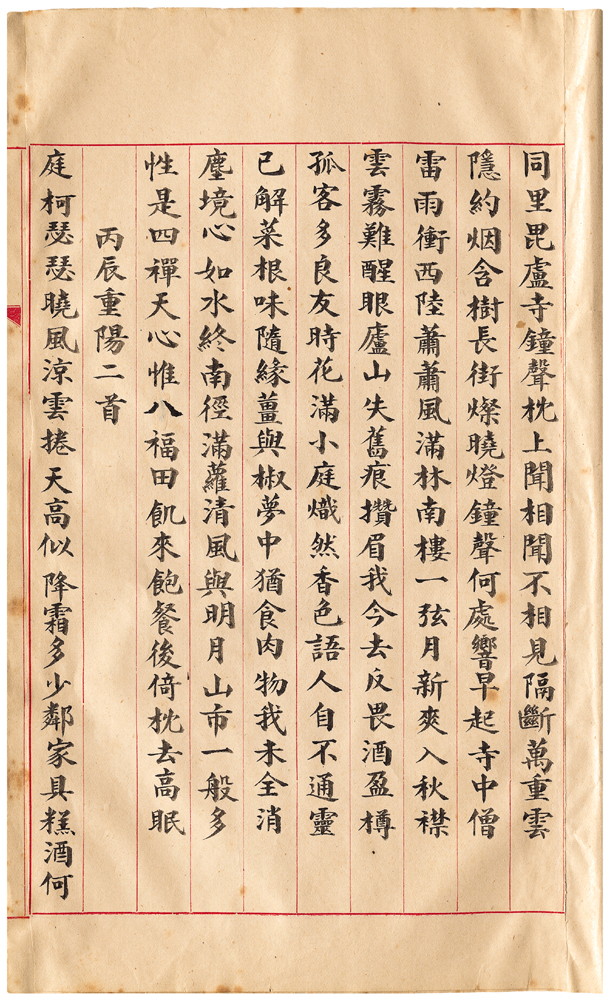 同里毘盧寺鐘聲枕上聞相聞不相見隔斷萬重雲
隱約烟含樹長街燦曉燈鐘聲何處響早起寺中僧
雷雨衝西陸蕭蕭風滿林南樓一弦月新爽入秋襟
雲霧難醒眼廬山失舊痕攢眉我今去反畏酒盈樽
孤客多良友時花滿小庭熾然香色語人自不通靈
已解菜根味隨緣薑與椒夢中猶食肉物我未全消
塵境心如水終南徑滿蘿清風與明月山市一般多
性是四禪天心惟八福田飢來飽餐後倚枕去高眠
丙辰重陽二首
庭柯瑟瑟曉風涼雲捲天高似降霜多少鄰家具糕酒何